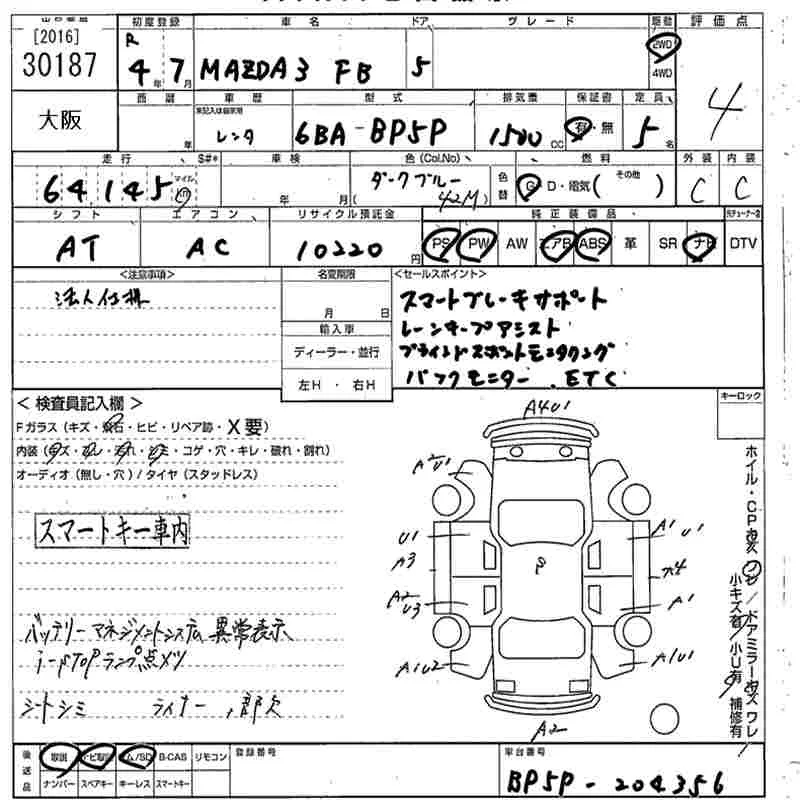 [2016]
30187
大阪
初度登録 車名 ドア グレード 駆動 評価点
R 4年 7月 MAZDA3 FB 5 2WD 4WD 4
西暦 車歴 型式 排気量 保証書 定員
年 レンタ 6BA-BP5P 1500cc 有・無 5名
走行 S#* 車検 色(Col.No) 燃料 外装 内装
64145 マイル km 年 月 ダークブルー 42M 色替 G・D・電気( その他 ) C C
シフト エアコン リサイクル預託金 純正装備品
AT AC 10220円 PS PW AW エアB ABS 革 SR ナビ DTV
<注意事項> 名変期限 <セールスポイント>
法人仕様
月 日
輸入車
ディーラー・並行
左H・右H
スマートブレーキサポート
レーンキープアシスト
ブラインドスポットモニタリング
バックモニター . ETC
キーロック
＜検査員記入欄＞
Fガラス(キズ・飛石・ヒビ・リペア跡・X要)
内装(キズ・スレ・汚れ・シミ・コゲ・穴・キレ・破れ・割れ)
オーディオ(無し・穴)/タイヤ(スタッドレス)
スマートキー車内
バッテリーマネジメントシステム異常表示
シートシミ ライナー,部欠
A4U1
A2U1
U1
A3
A2
U3
A1U2
A1
U1
A1
A1U1
A2
ホイル・CPカケ
小キズ有/小U有
ドアミラーキズ ワレ
補修有
後送品 取説 ナビ取説 B-CAS リモコン
ナンバー スペアキー キーレス スマートキー
登録番号
車台番号
BP5P-204356